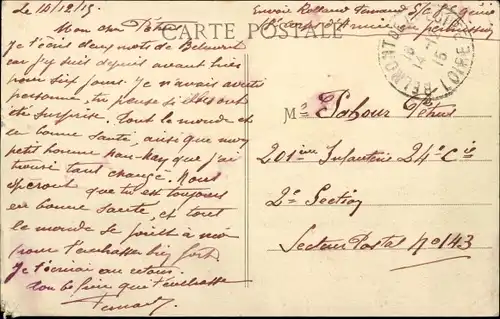 Le 14/12/15
Mon cher Pétrus
Je t'écris deux mots de Belmont
car j'y suis depuis avant hier
pour six jours. Je n'avais averti
personne, tu pense si ils ont
été surprise. Tout le monde est
en bonne santé, ainsi que mon
petit homme que j'ai
trouvé tant changé. Nous
espérons que tu es toujours
en bonne santé, et tout
le monde se joint à moi
pour t'embrasser bien fort
Je t'écrirai au retour.
Ton qui t'embrasse
CARTE POSTALE
Envoi Rolland Fernand
Corps d'Armée en permission
BELMONT DE LA LOIRE
14 -12 15
LOIRE
M. Pétrus
201ème Infanterie 24e Cie
2e Section
Secteur Postal No 143